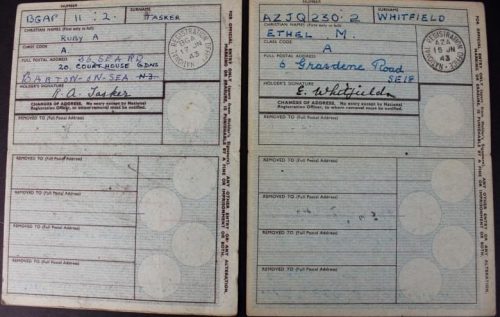 SURNAME
BGAP 11:2. TASKER
CHRISTIAN NAMES (First only in full)
RUBY A
CLASS CODE
A
FULL POSTAL ADDRESS
20. COURT HOUSE GDNS
BARTON-ON-SEA N3.
HOLDER'S SIGNATURE
R. A. Tasker
CHANGES OF ADDRESS. No entry except by National
Registration Officer, to whom removal must be notified.
REMOVED TO (Full Postal Address)
REMOVED TO (Full Postal Address)
REMOVED TO (Full Postal Address)
REMOVED TO (Full Postal Address)
REMOVED TO (Full Postal Address)
NATIONAL REGISTRATION OFFICE
17 JN
43
ANY OTHER ENTRY OR ANY ALTERATION, IS PUNISHABLE BY A FINE OR IMPRISONMENT OR BOTH.
SURNAME
AZJQ 230·2 WHITFIELD
CHRISTIAN NAMES (First only in full)
ETHEL M.
CLASS CODE
A
FULL POSTAL ADDRESS
6 Grasdene Road
SE18
HOLDER'S SIGNATURE
E. Whitfield
CHANGES OF ADDRESS. No entry except by National
Registration Officer, to whom removal must be notified.
REMOVED TO (Full Postal Address)
REMOVED TO (Full Postal Address)
REMOVED TO (Full Postal Address)
REMOVED TO (Full Postal Address)
REMOVED TO (Full Postal Address)
NATIONAL REGISTRATION OFFICE
AZA
15 JN
43
ANY OTHER ENTRY OR ANY ALTERATION, IS PUNISHABLE BY A FINE OR IMPRISONMENT OR BOTH.